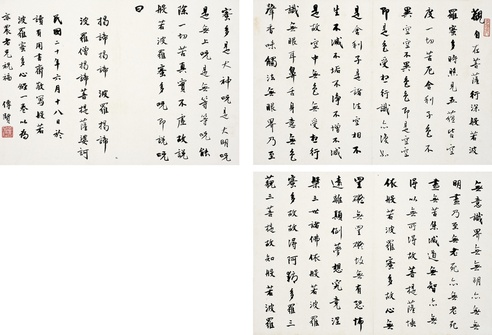 觀自在菩薩行深般若波
羅蜜多時照見五蘊皆空
度一切苦厄舍利子色不
異空空不異色色即是空空
即是色受想行識亦復如
是舍利子是諸法空相不
生不滅不垢不淨不增不減
是故空中無色無受想行
識無眼耳鼻舌身意無色
聲香味觸法無眼界乃至
無意識界無無明亦無無
明盡乃至無老死亦無老死
盡無苦集滅道無智亦無
得以無所得故菩提薩埵
依般若波羅蜜多故心無
罣礙無罣礙故無有恐怖
遠離顛倒夢想究竟涅
槃三世諸佛依般若波羅
蜜多故得阿耨多羅三
藐三菩提故知般若波羅
蜜多是大神咒是大明咒
是無上咒是無等等咒能
除一切苦真實不虛故說
般若波羅蜜多咒即說咒
曰
揭諦揭諦 波羅揭諦
波羅僧揭諦菩提薩婆訶
民國二十年六月十八日於
讀有用書齋敬寫般若
波羅蜜多心經一卷以為
老兄祝福 傅